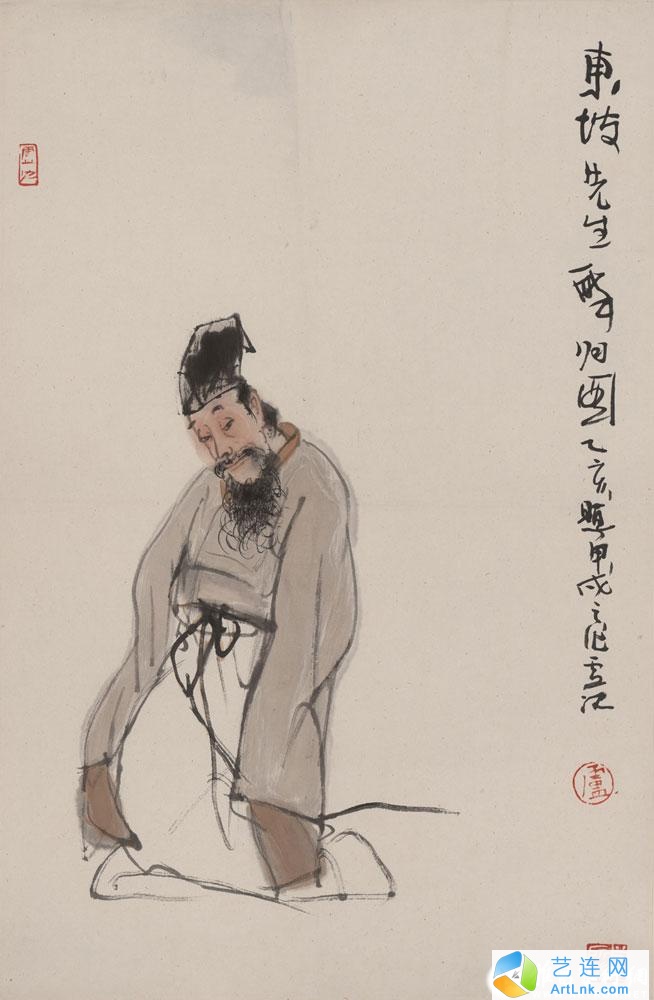 東坡先生醉归图乙亥题甲戌之作卢沉
盧
艺连网
ArtLnk.com